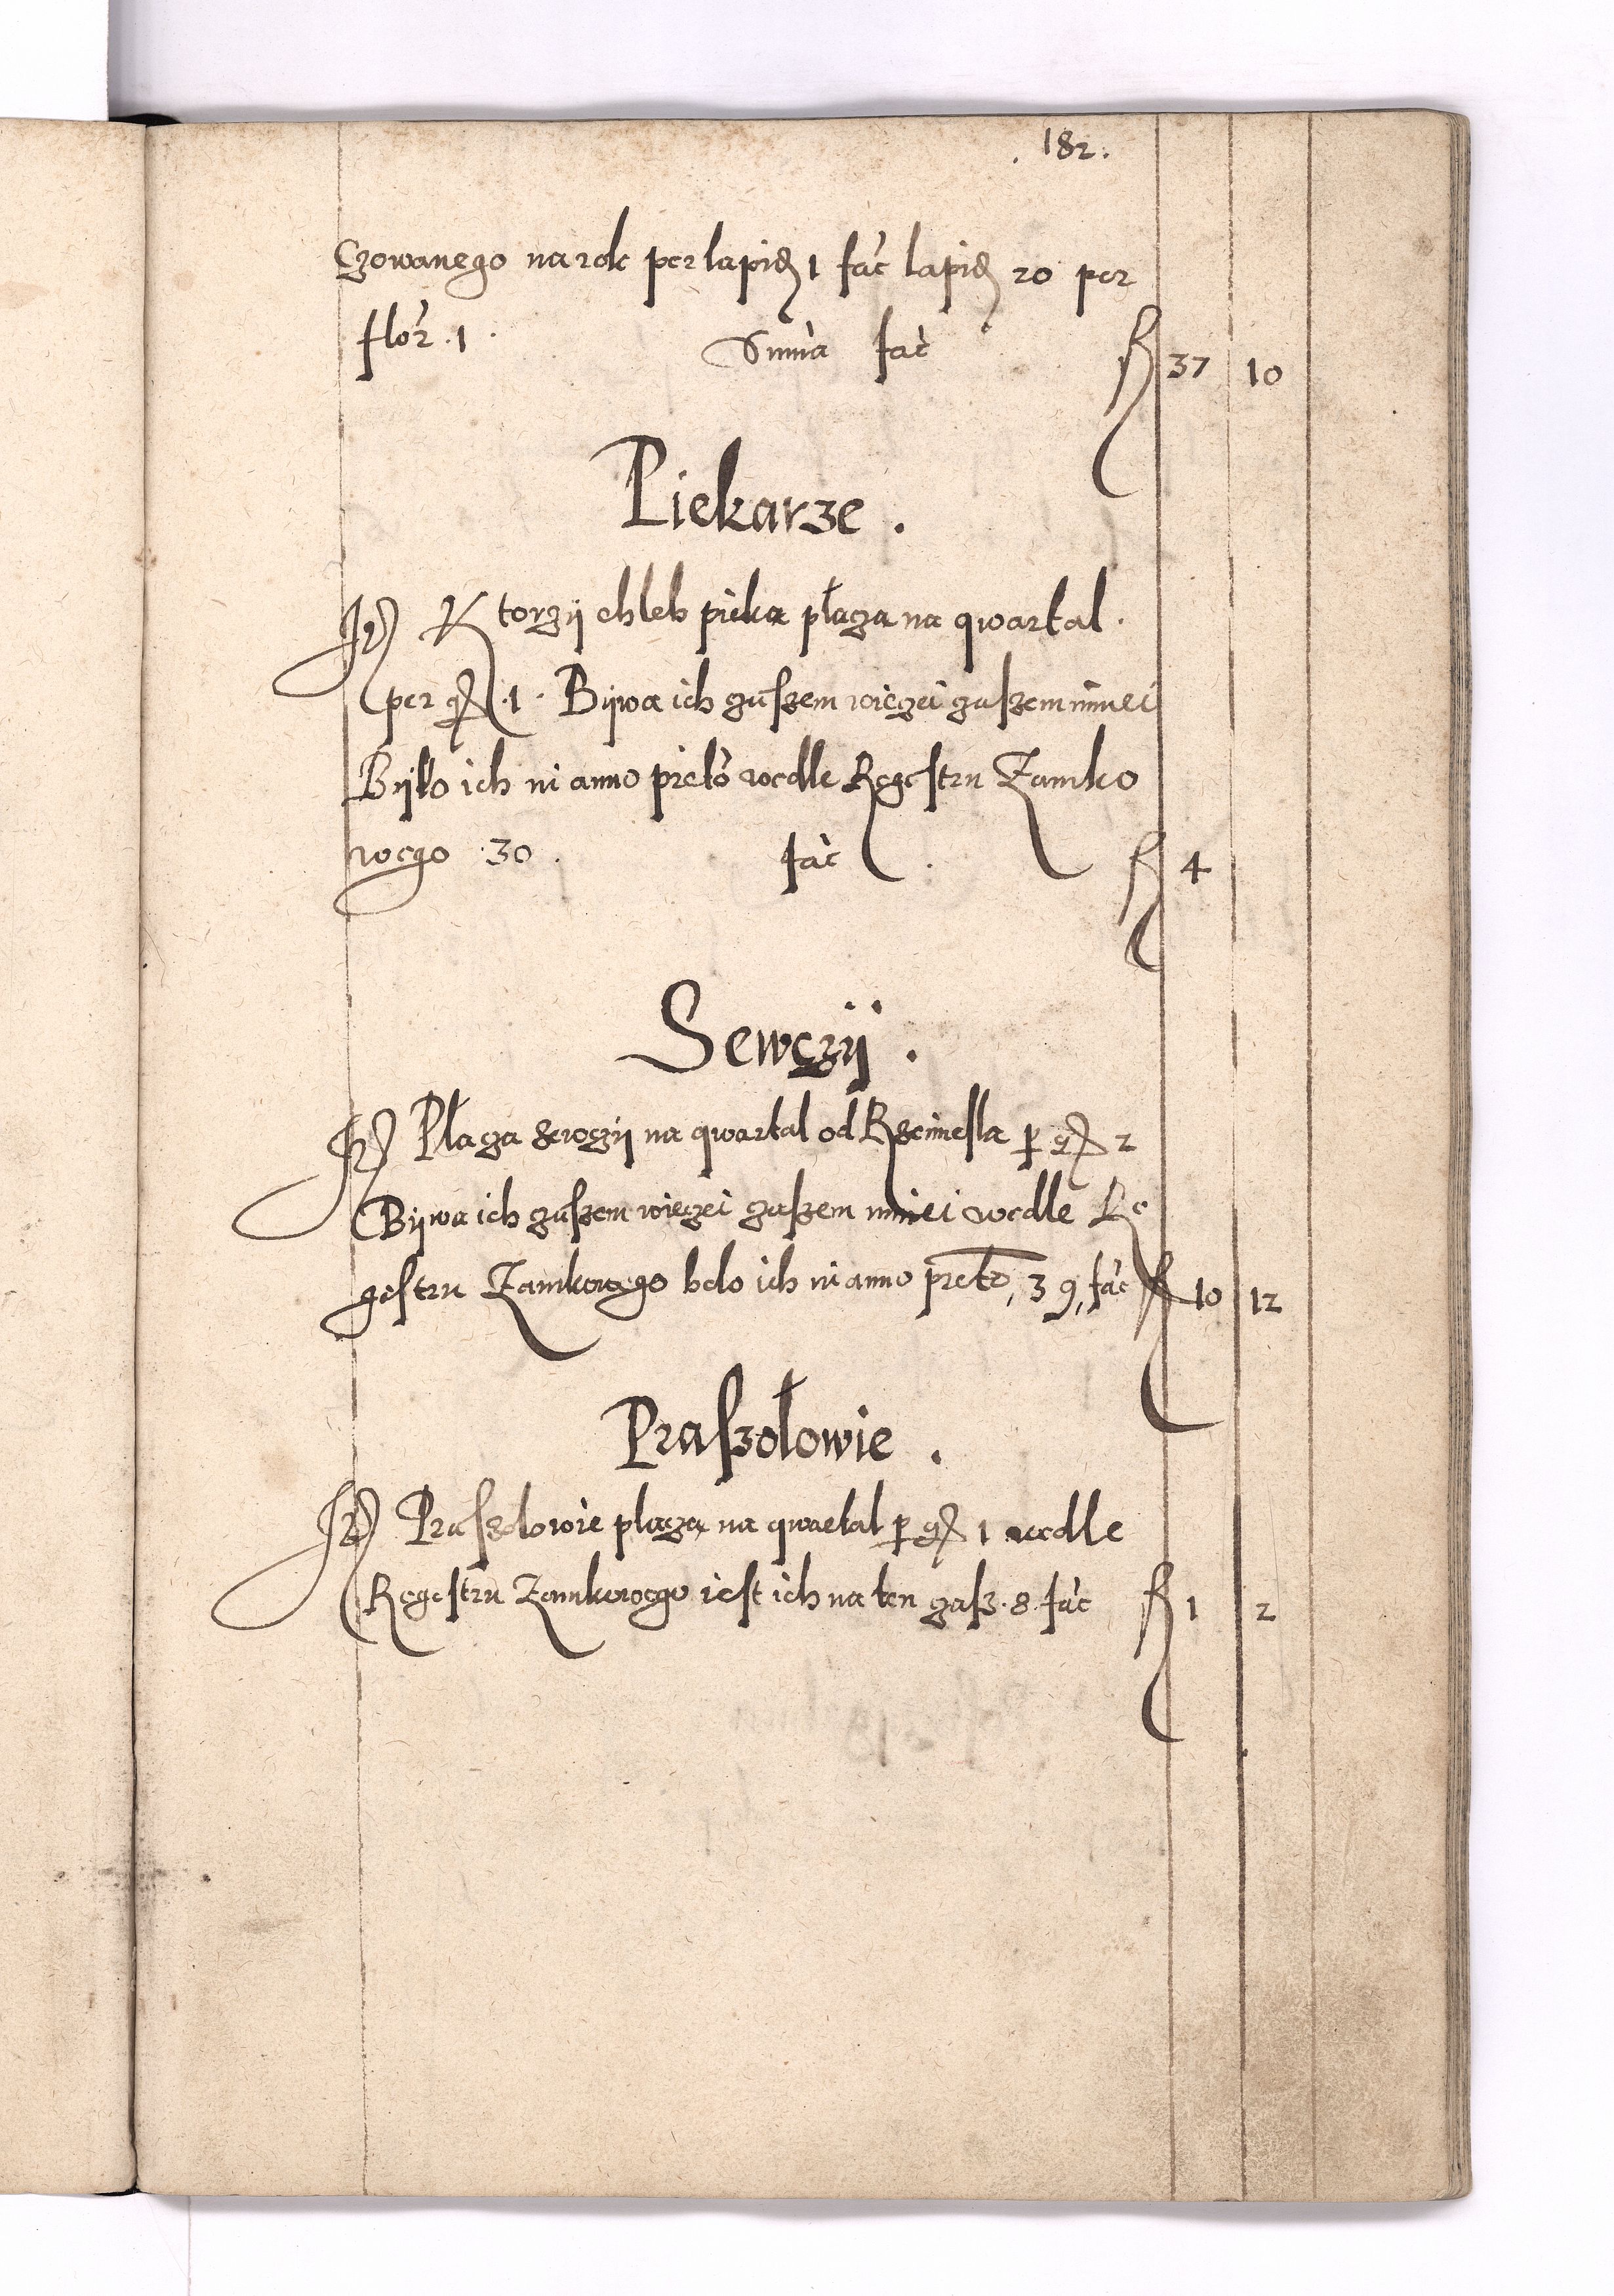 . 182 .
Czowanego na rok per lapid 1 fac lapid 20 per
flor . 1 . Suma fac fl 37 10
Piekarze .
It Ktorzÿ chleb pieka płaza na qwartal .
per gr .1. Bÿwa ich zaszem wiezei zaszem mniei
Bÿło ich in anno preto wedle Regestru Zamko
wego 30 . fac . fl 4
Sewczÿ .
It Płaza sewczÿ na qwartal od Rzeimesla p gr 2
Bÿwa ich zaszem wiezei zaszem mniei wedle Re
gestru Zamkowego belo ich in anno preto, 39, fac fl 10 12
Praszołowie .
It Praszolowie plaza na qwartal p gr 1 wedle
Regestru Zamkowego iest ich na ten zasz . 8 . fac fl 1 2